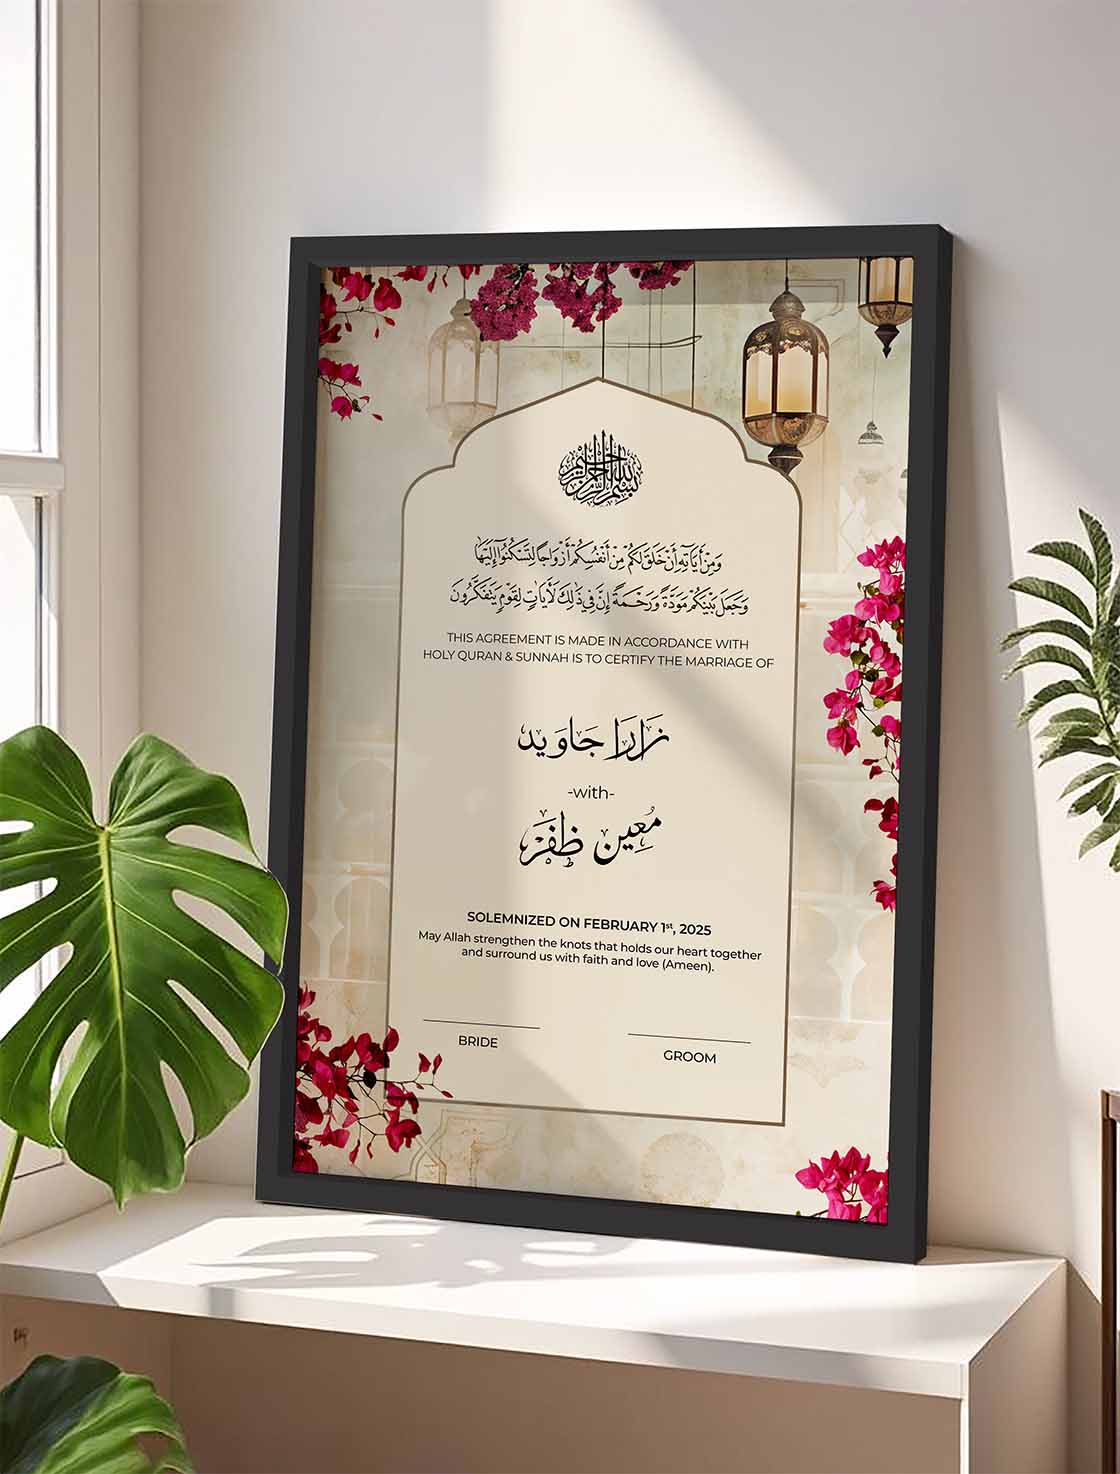 بسم الله الرحمن الرحيم
وَمِنْ آيَاتِهِ أَنْ خَلَقَ لَكُمْ مِنْ أَنْفُسِكُمْ أَزْوَاجًا لِتَسْكُنُوا إِلَيْهَا
وَجَعَلَ بَيْنَكُمْ مَوَدَّةً وَرَحْمَةً إِنَّ فِي ذَٰلِكَ لَآيَاتٍ لِقَوْمٍ يَتَفَكَّرُونَ
THIS AGREEMENT IS MADE IN ACCORDANCE WITH
HOLY QURAN & SUNNAH IS TO CERTIFY THE MARRIAGE OF
زَارَا جَاوَيد
-with-
مُعِين ظَفَر
SOLEMNIZED ON FEBRUARY 1st, 2025
May Allah strengthen the knots that holds our heart together
and surround us with faith and love (Ameen).
BRIDE
GROOM